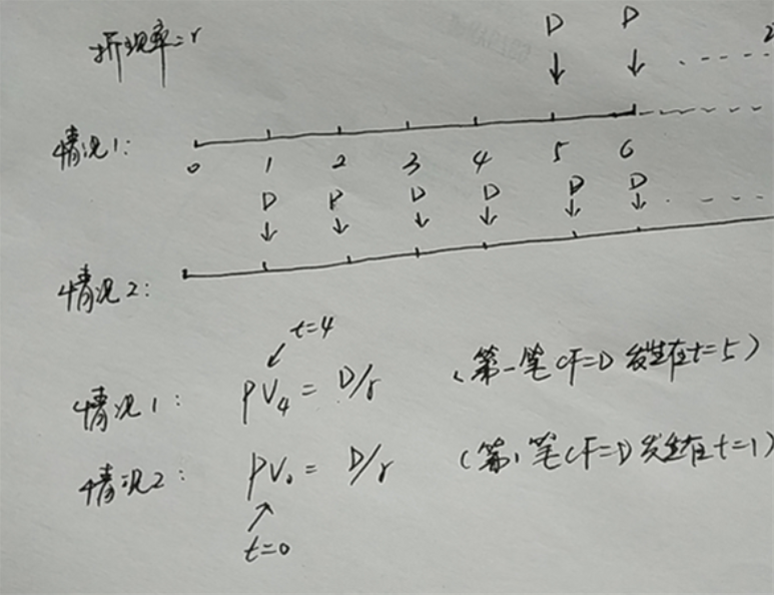 折现率=r
D D
情况1:
0 1 2 3 4 5 6
D D D D D D
情况2:
t=4
情况1: PV₄= D/r (第一笔CF=D 发生在t=5)
情况2: PV₀= D/r (第1笔CF=D发生在t=1)
t=0